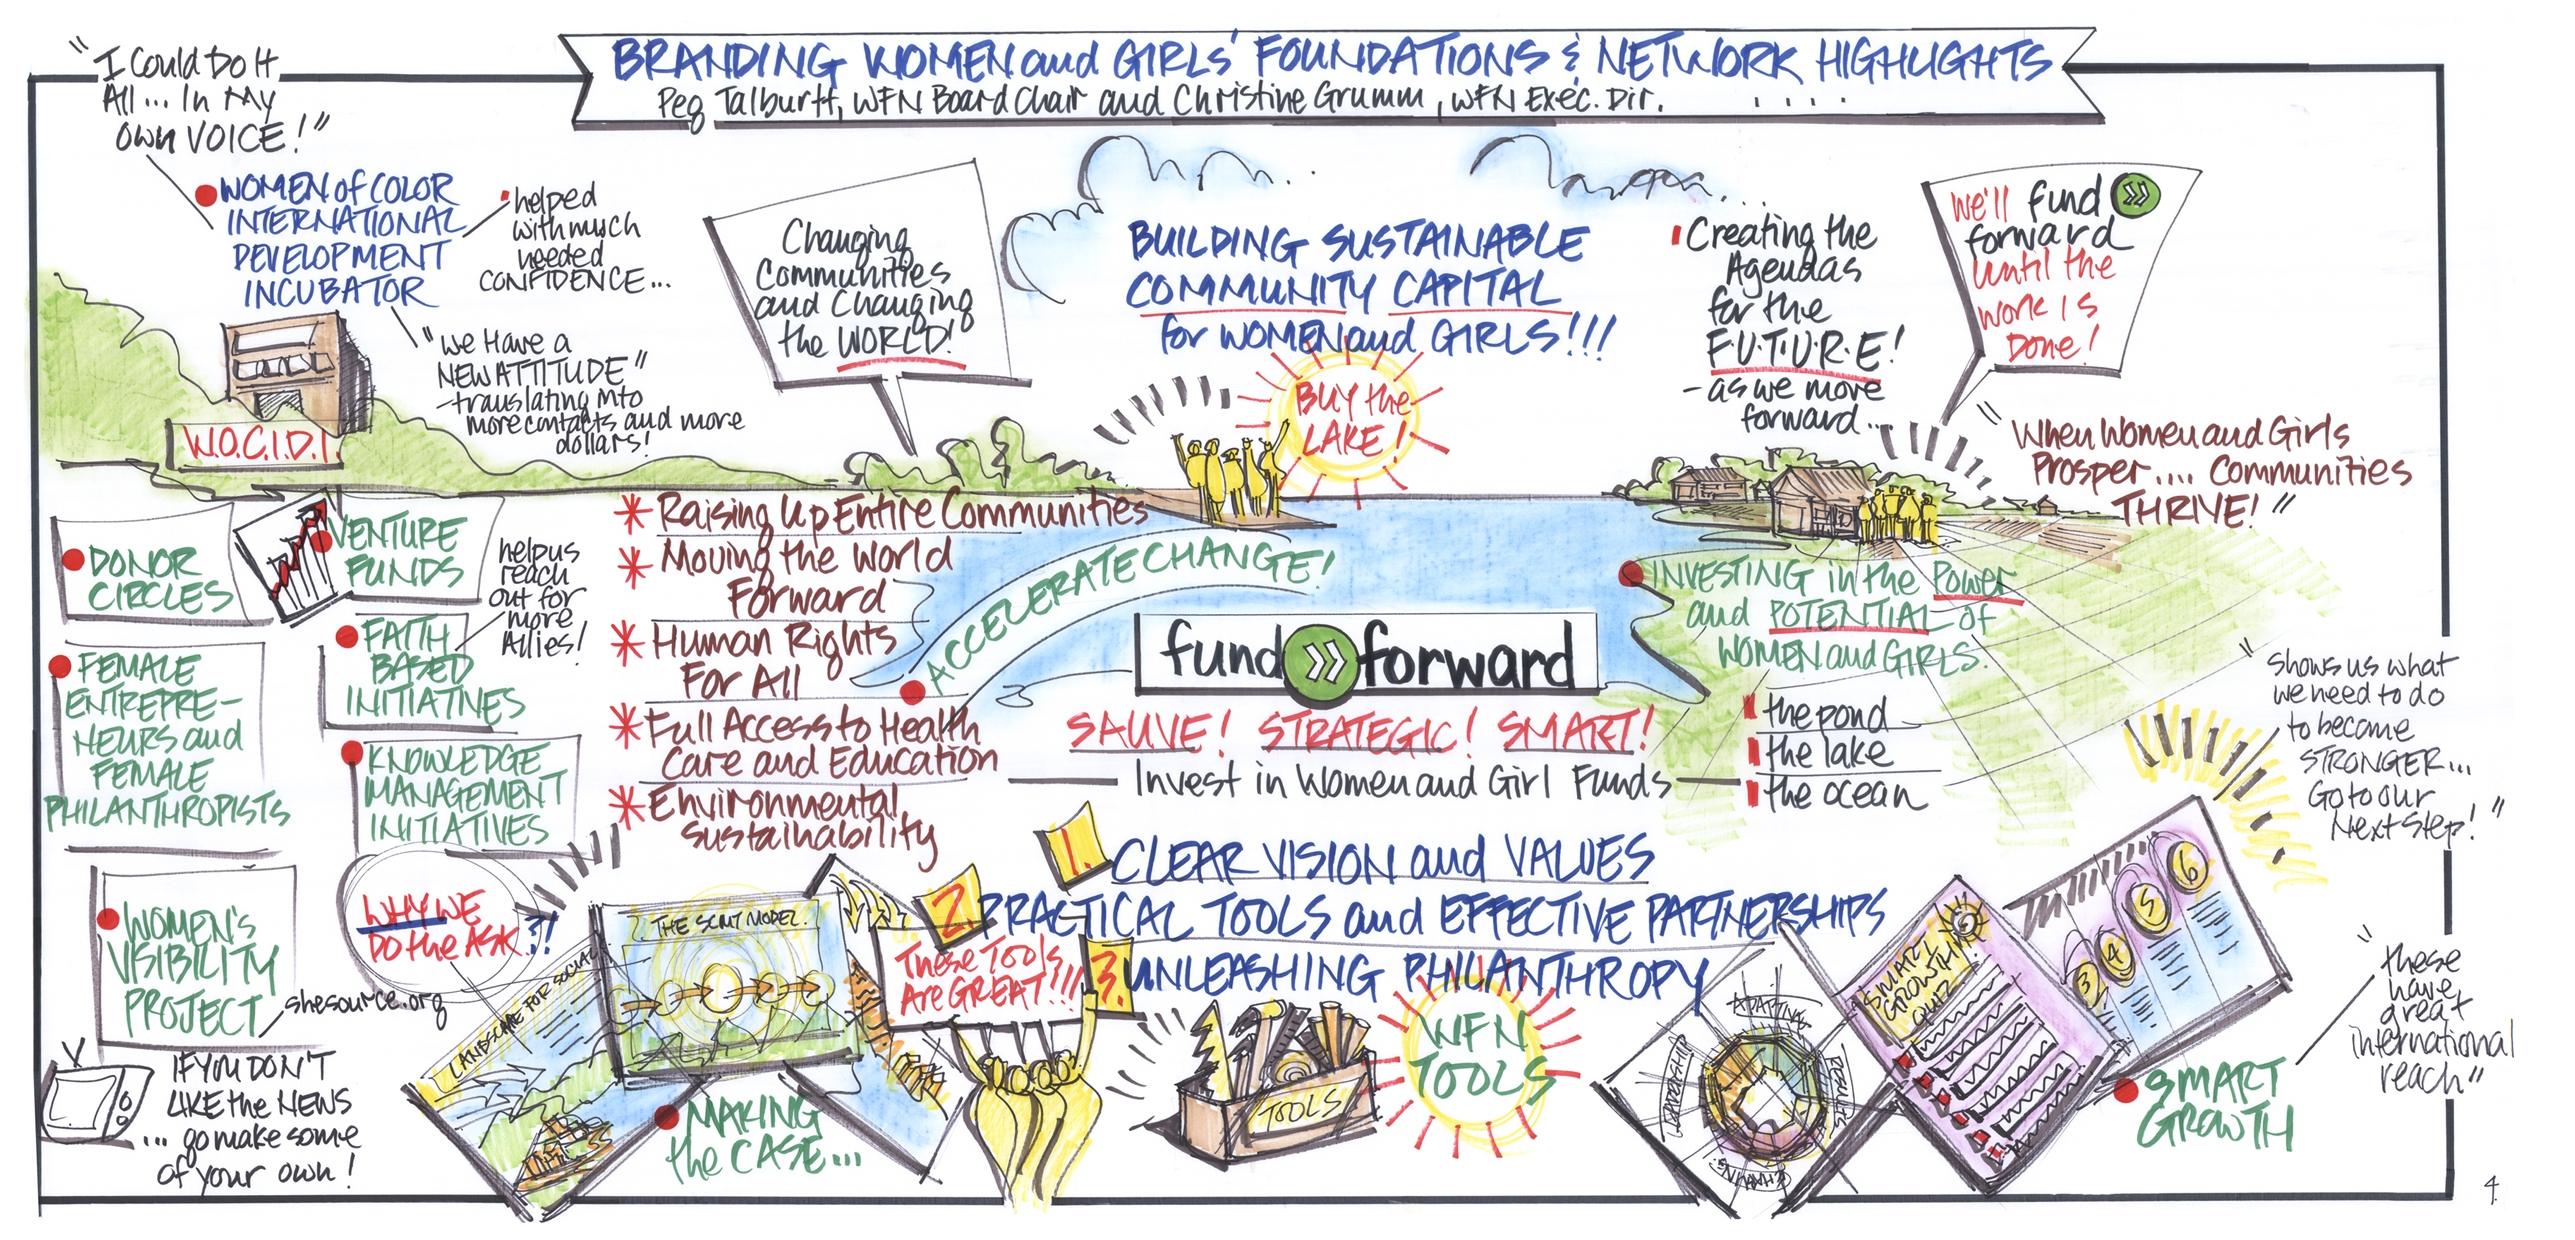 BRANDING WOMEN and GIRLS' FOUNDATIONS & NETWORK HIGHLIGHTS
Peg Talburtt, WFN Board Chair and Christine Grumm, WFN Exec. Dir.
"I Could Do It
All... In My
Own VOICE!"
WOMEN of COLOR
INTERNATIONAL
DEVELOPMENT
INCUBATOR
helped
with much
needed
CONFIDENCE...
"We Have a
NEW ATTITUDE"
-translating into
more contacts and more
dollars!
W.O.C.I.D.I.
Changing
Communities
and Changing
the WORLD!
BUILDING SUSTAINABLE
COMMUNITY CAPITAL
for WOMEN and GIRLS!!!
BUY the
LAKE!
Creating the
Agendas
for the
F.U.T.U.R.E!
- as we move
forward...
We'll fund
forward
until the
work is
Done!
"When Women and Girls
Prosper.... Communities
THRIVE!"
DONOR
CIRCLES
VENTURE
FUNDS
FEMALE
ENTREPRE-
NEURS and
FEMALE
PHILANTHROPISTS
FAITH
BASED
INITIATIVES
help us
reach
out for
more
Allies!
KNOWLEDGE
MANAGEMENT
INITIATIVES
WOMEN'S
VISIBILITY
PROJECT
shesource.org
IF YOU DON'T
LIKE the NEWS
... go make some
of your own!
Raising Up Entire Communities
Moving the World
Forward
Human Rights
For All
Full Access to Health
Care and Education
Environmental
Sustainability
ACCELERATE CHANGE!
fund forward
SAUVE! STRATEGIC! SMART!
Invest in Women and Girl Funds
INVESTING in the Power
and POTENTIAL of
WOMEN and GIRLS.
the pond
the lake
the ocean
1. CLEAR VISION and VALUES
2. PRACTICAL TOOLS and EFFECTIVE PARTNERSHIPS
3. UNLEASHING PHILANTHROPY
WHY WE
DO the ASK?!
LANDSCAPE FOR SOCIAL
THE SCMT MODEL.
MAKING
the CASE...
These TOOLS
Are GREAT!!!
TOOLS
WFN
TOOLS
ADAPTIVE
LEADERSHIP
RESULTS
SMART
GROWTH
QUIZ
3
4
5
6
SMART
GROWTH
"Shows us what
we need to do
to become
STRONGER...
Go to our
Next Step!"
"these
have
great
international
reach"
4.